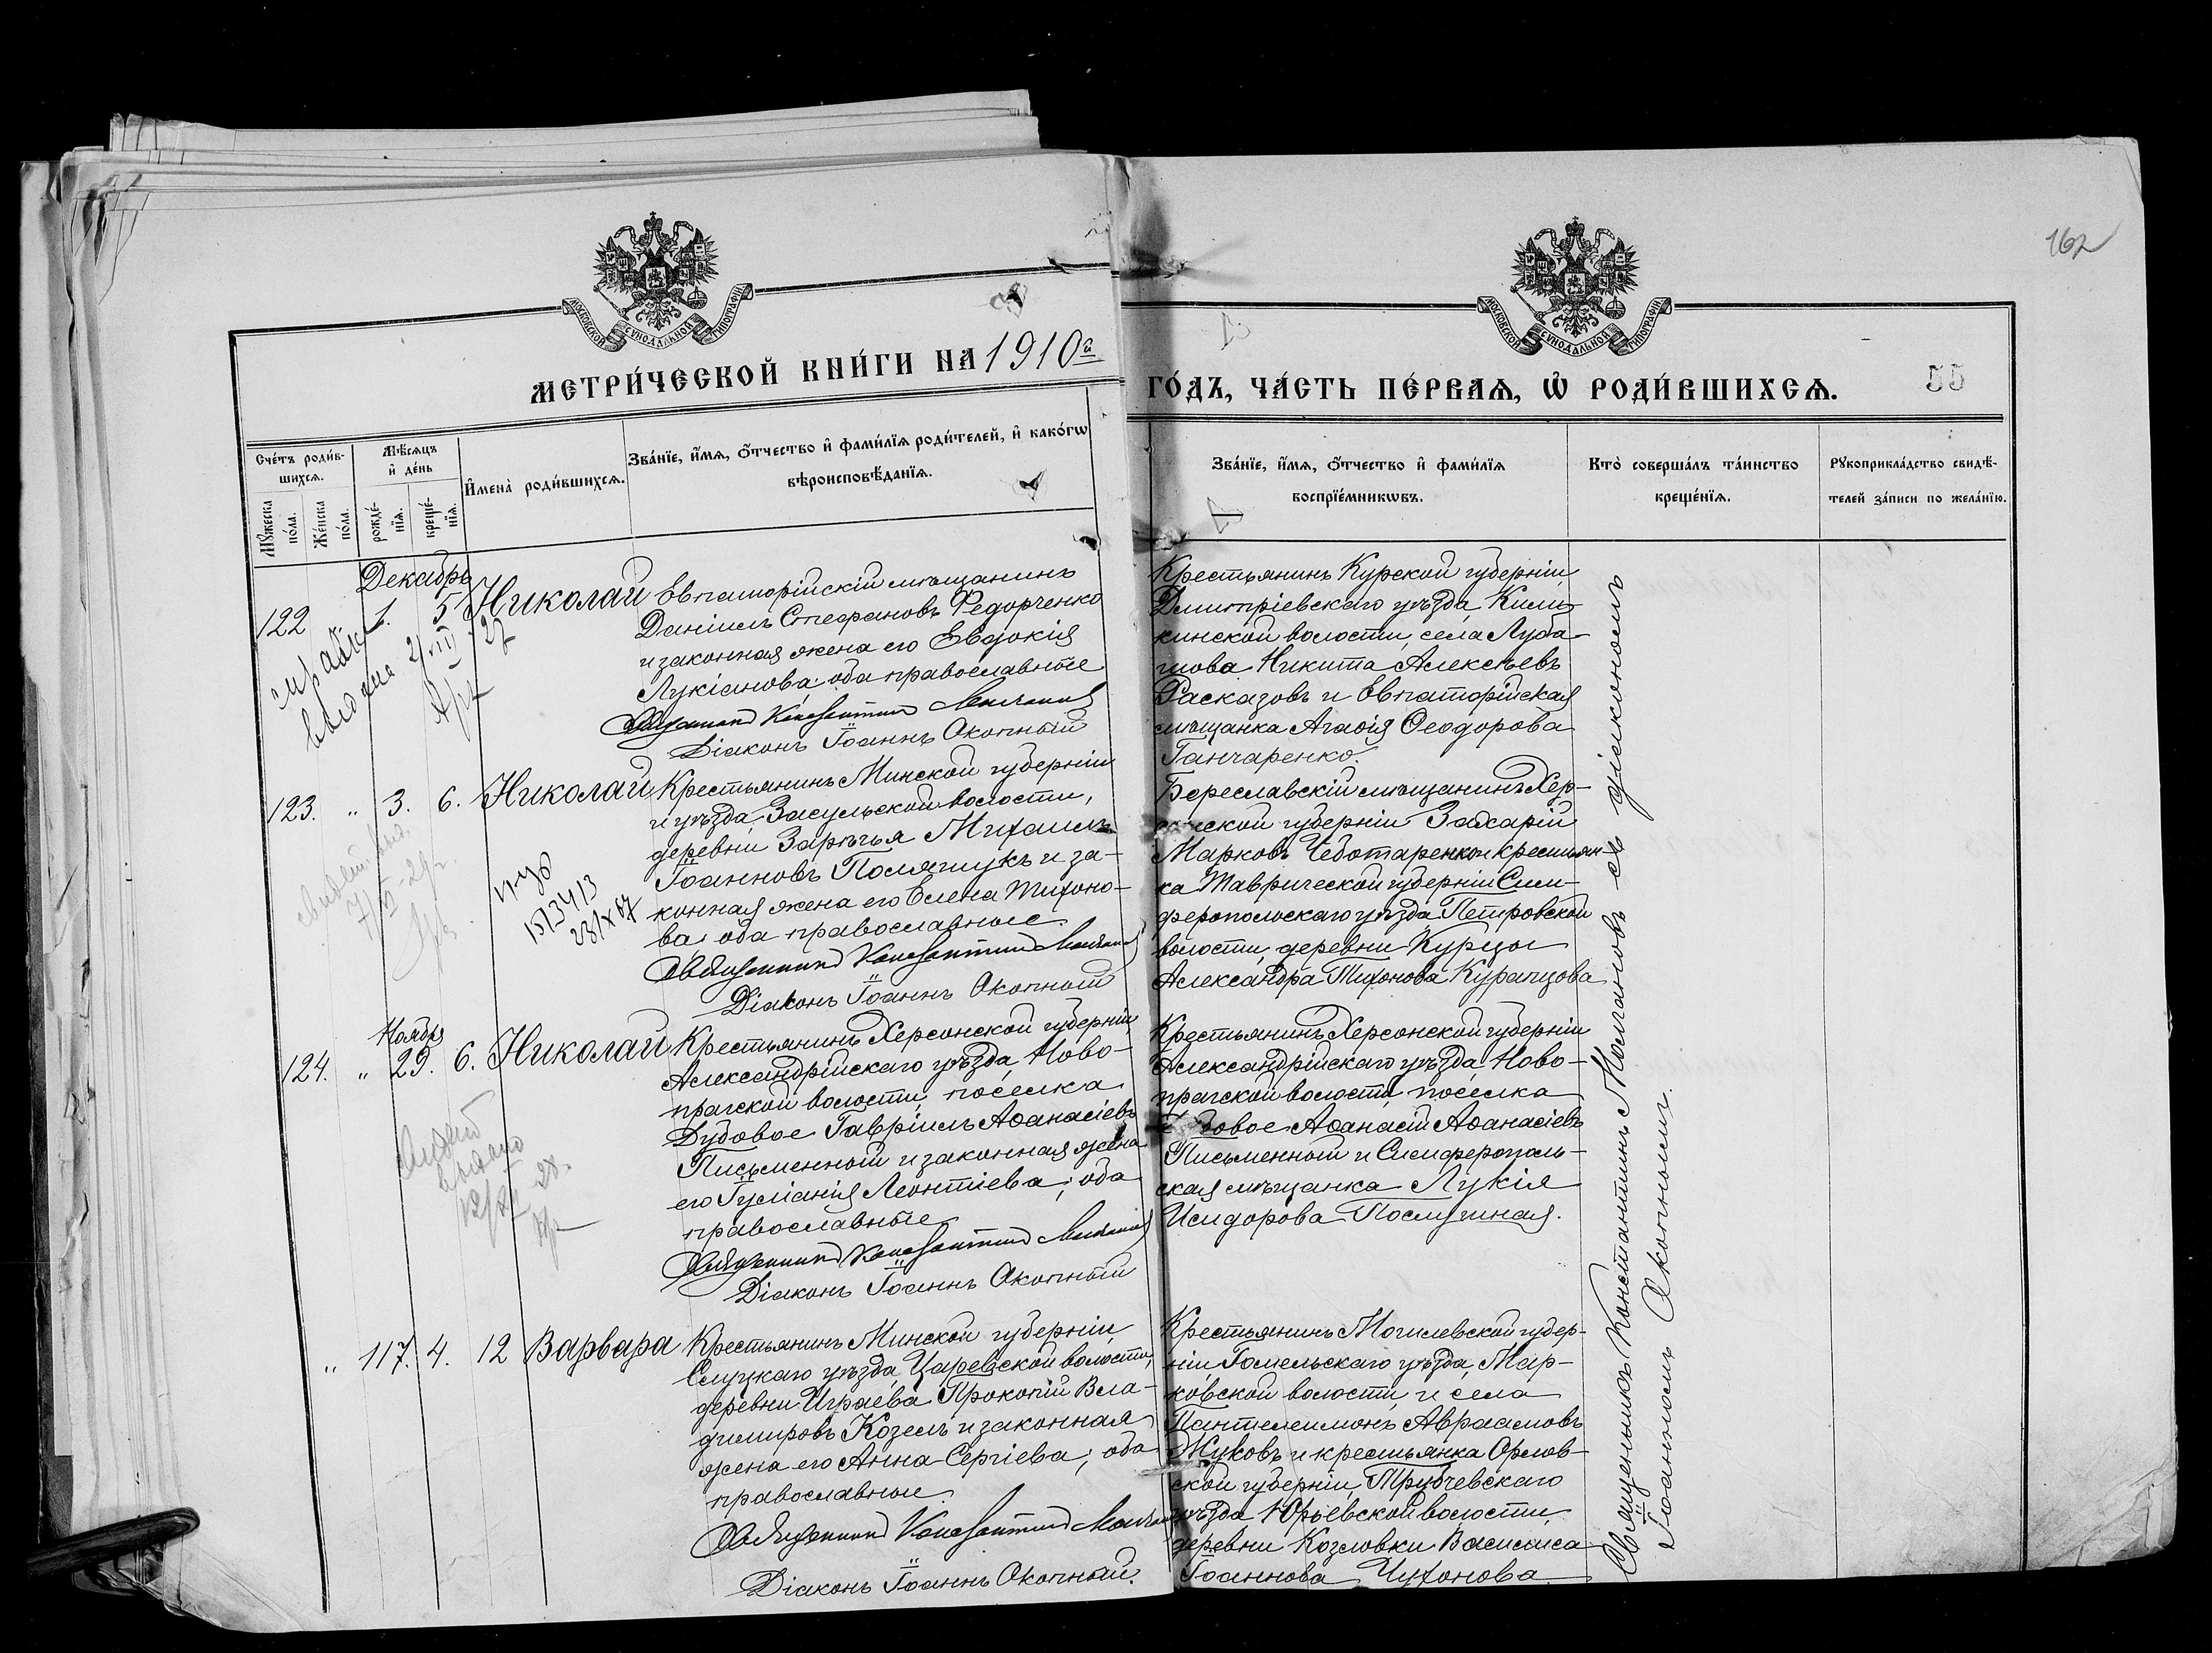 162
МОСКОВСКОЙ СУНОДАЛЬНОЙ ТИПОГРАФІИ
МОСКОВСКОЙ СУНОДАЛЬНОЙ ТИПОГРАФІИ
МЕТРИ́ЧЕСКОЙ КНИ́ГИ НА 1910й
ГО́ДЪ, ЧА́СТЬ ПЕ́РВАѦ, Ѡ҆ РОДИ́ВШИХСѦ.
55
Сче́тъ роди́в-
шихсѧ.
Мꙋ́жеска по́ла.
Же́нска по́ла.
Мѣ́сѧцъ
и҆ де́нь
рожде́-
нїѧ.
креще́-
нїѧ.
И҆мена̀ роди́вшихсѧ.
Зва́нїе, и҆́мѧ, ѻ҆́тчество и҆ фами́лїѧ роди́телей, и҆ како́гѡ
вѣроисповѣ́данїѧ.
Зва́нїе, и҆́мѧ, ѻ҆́тчество и҆ фами́лїѧ
воспрїе́мникѡвъ.
Кто̀ соверша́лъ та́инство
креще́нїѧ.
Рꙋкоприкла́дство свидѣ́-
телей за́писи по жела́нїю.
Декабрь
122 1. 5 Николай
Евпаторійскій мѣщанинъ
Даніилъ Стефановъ Федорченко
и законная жена его Евдокія
Лукіанова; оба православные
Священникъ Константинъ
Діаконъ Іоаннъ Окопный
Крестьянинъ Курской губерніи
Дмитріевскаго уѣзда,
кинской волости, села Луба-
шова Никита Алексѣевъ
Расказовъ и Евпаторійская
мѣщанка Агаѳія Ѳеодорова
Ганчаренко.
123. " 3. 6. Николай
Крестьянинъ Минской губерніи
и уѣзда, Засульской волости,
деревни Зарѣчья Михаилъ
Іоанновъ Полячукъ и за-
конная жена его Елена Тихоно-
ва; оба православные.
Священникъ Константинъ
Діаконъ Іоаннъ Окопный
15/3413
Береславскій мѣщанинъ Хер-
сонской губерніи Захарій
Марковъ Чеботаренко и крестьян-
ка Таврической губерніи Сим-
феропольскаго уѣзда, Петровской
волости, деревни Курцы
Александра Тихонова Курапцова
Ноября
124. " 29. 6. Николай
Крестьянинъ Херсонской губерніи,
Александрійскаго уѣзда, Ново-
прагской волости, поселка
Дубовое Гавріилъ Аѳанасіевъ
Письменный и законная жена
его Іуліанія Леонтіева; оба
православные
Священникъ Константинъ
Діаконъ Іоаннъ Окопный
Крестьянинъ Херсонской губерніи
Александрійскаго уѣзда, Ново-
прагской волости, поселка
Дубовое Аѳанасій Аѳанасіевъ
Письменный и Симферополь-
ская мѣщанка Лукія
Исидорова Послушная.
" 117. 4. 12 Варвара
Крестьянинъ Минской губерніи,
Слуцкаго уѣзда, Царевской волости,
деревни Играева Прокопій Вла-
димировъ Козелъ и законная
жена его Анна Сергіева; оба
православные.
Священникъ Константинъ
Діаконъ Іоаннъ Окопный.
Крестьянинъ Могилевской губер-
ніи Гомельскаго уѣзда, Мар-
ковской волости и села
Пантелеимонъ Авраамовъ
Жуковъ и крестьянка Орлов-
ской губерніи, Трубчевскаго
уѣзда Юрьевской волости,
деревни Козловки Василиса
Іоаннова Чухонова
Священникъ Константинъ Молчановъ съ діакономъ
Іоанномъ Окопнымъ.